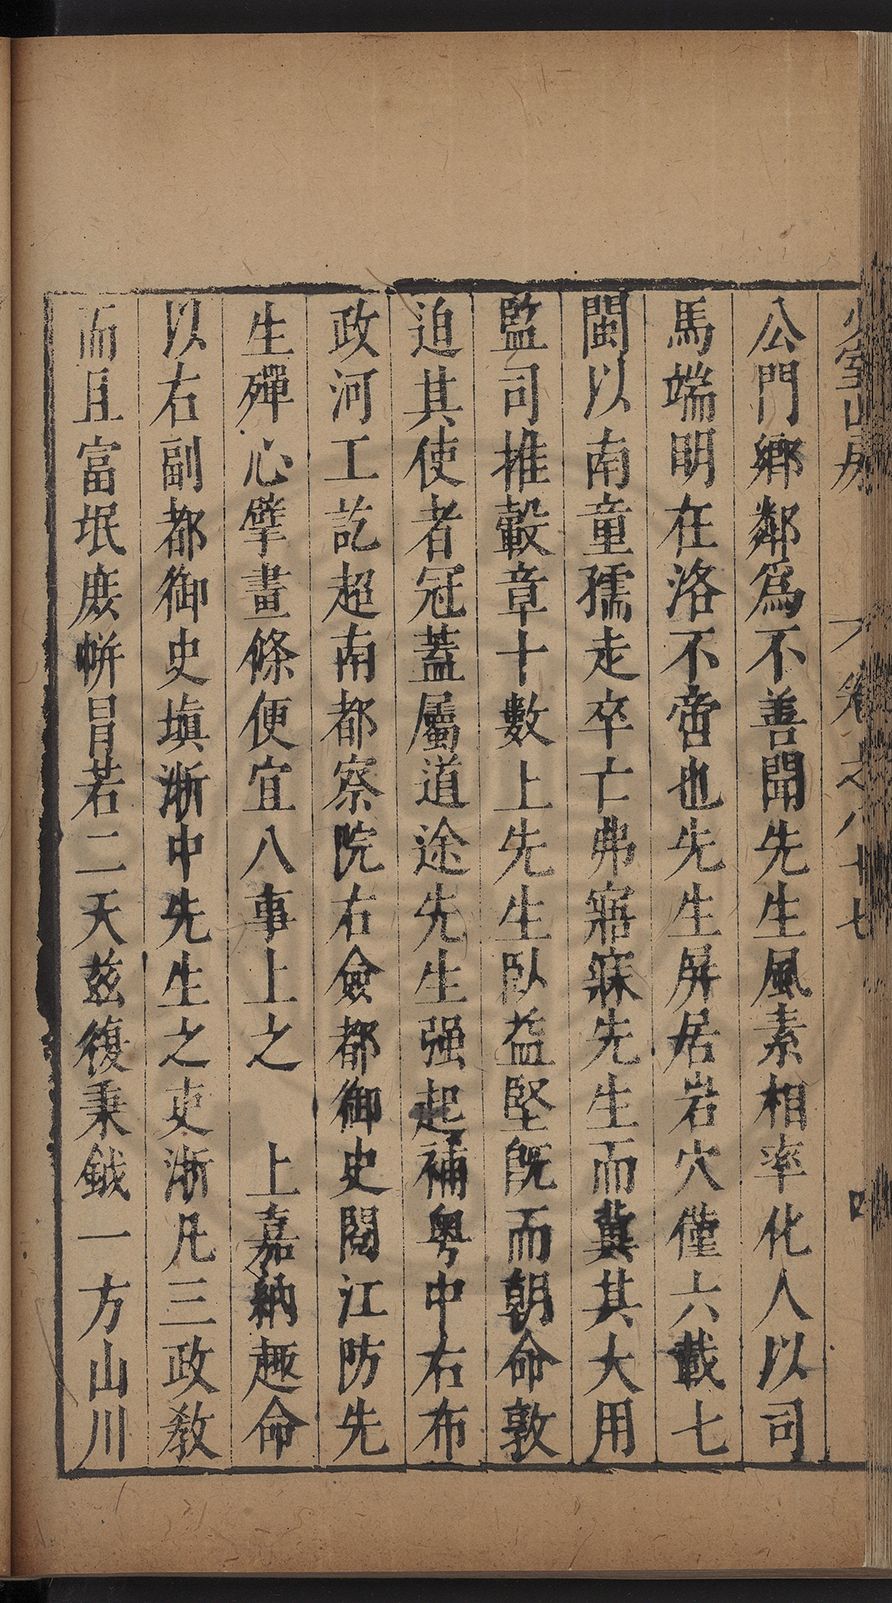 少室山房
卷之八十七
四
公門鄉鄰爲不善聞先生風素相率化人以司
馬端明在洛不啻也先生屏居岩穴僅六載七
閩以南童孺走卒亡弗寤寐先生而冀其大用
監司推轂章十數上先生臥益堅旣而朝命敦
迫其使者冠蓋屬道途先生强起補粤中右布
政河工訖超南都察院右僉都御史閱江防先
生殫心擘畫條便宜八事上之　上嘉納趣命
以右副都御史塡浙中先生之吏浙凡三政教
而且富垊庶帡冒若二天兹復秉鉞一方山川